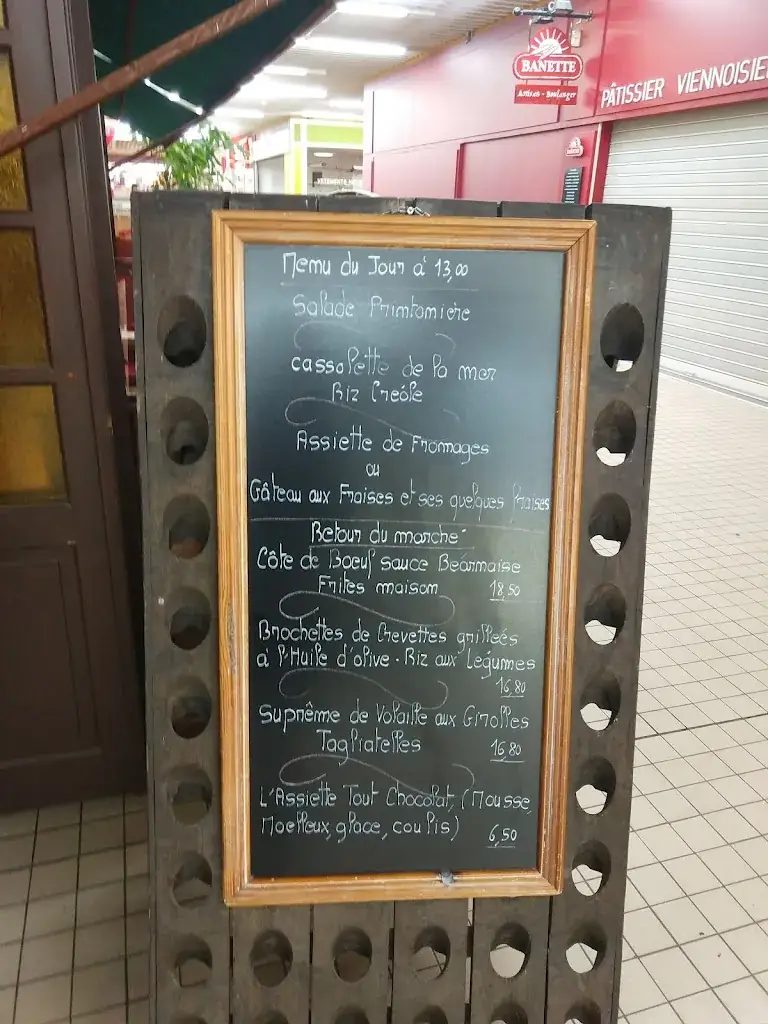 BANETTE
Artisan - Boulanger
PÂTISSIER VIENNOISIE
Menu du Jour à 13,00
Salade Printanière
cassolette de la mer
Riz Créole
Assiette de Fromages
ou
Gâteau aux Fraises et ses quelques fraises
Retour du marché
Côte de Boeuf sauce Béarnaise
Frites maison 18,50
Brochettes de Crevettes grillées
à l'Huile d'olive - Riz aux Légumes
16,80
Suprême de Volaille aux Girolles
Tagliatelles 16,80
L'Assiette Tout Chocolat, (Mousse,
Moelleux, glace, coulis) 6,50